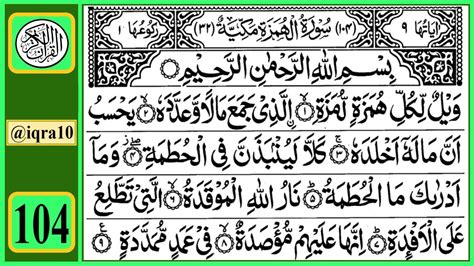 القرآن الكريم
@iqra10
104
اٰيَاتُهَا ٩
(١٠٤) سُوْرَةُ الْهُمَزَةِ مَكِّيَّةٌ (٣٢)
رُكُوْعُهَا ١
بِسْمِ اللّٰهِ الرَّحْمٰنِ الرَّحِيْمِ
وَيْلٌ لِّكُلِّ هُمَزَةٍ لُّمَزَةٍ ۙ﴿١﴾ الَّذِيْ جَمَعَ مَالًا وَّعَدَّدَهٗ ۙ﴿٢﴾ يَحْسَبُ
اَنَّ مَالَهٗٓ اَخْلَدَهٗ ۚ﴿٣﴾ كَلَّا لَيُنْۢبَذَنَّ فِي الْحُطَمَةِ ۖ﴿٤﴾ وَمَآ
اَدْرٰىكَ مَا الْحُطَمَةُ ؕ﴿٥﴾ نَارُ اللّٰهِ الْمُوْقَدَةُ ۙ﴿٦﴾ الَّتِيْ تَطَّلِعُ
عَلَى الْاَفْـِٕدَةِ ؕ﴿٧﴾ اِنَّهَا عَلَيْهِمْ مُّؤْصَدَةٌ ۙ﴿٨﴾ فِيْ عَمَدٍ مُّمَدَّدَةٍ ﴿٩﴾